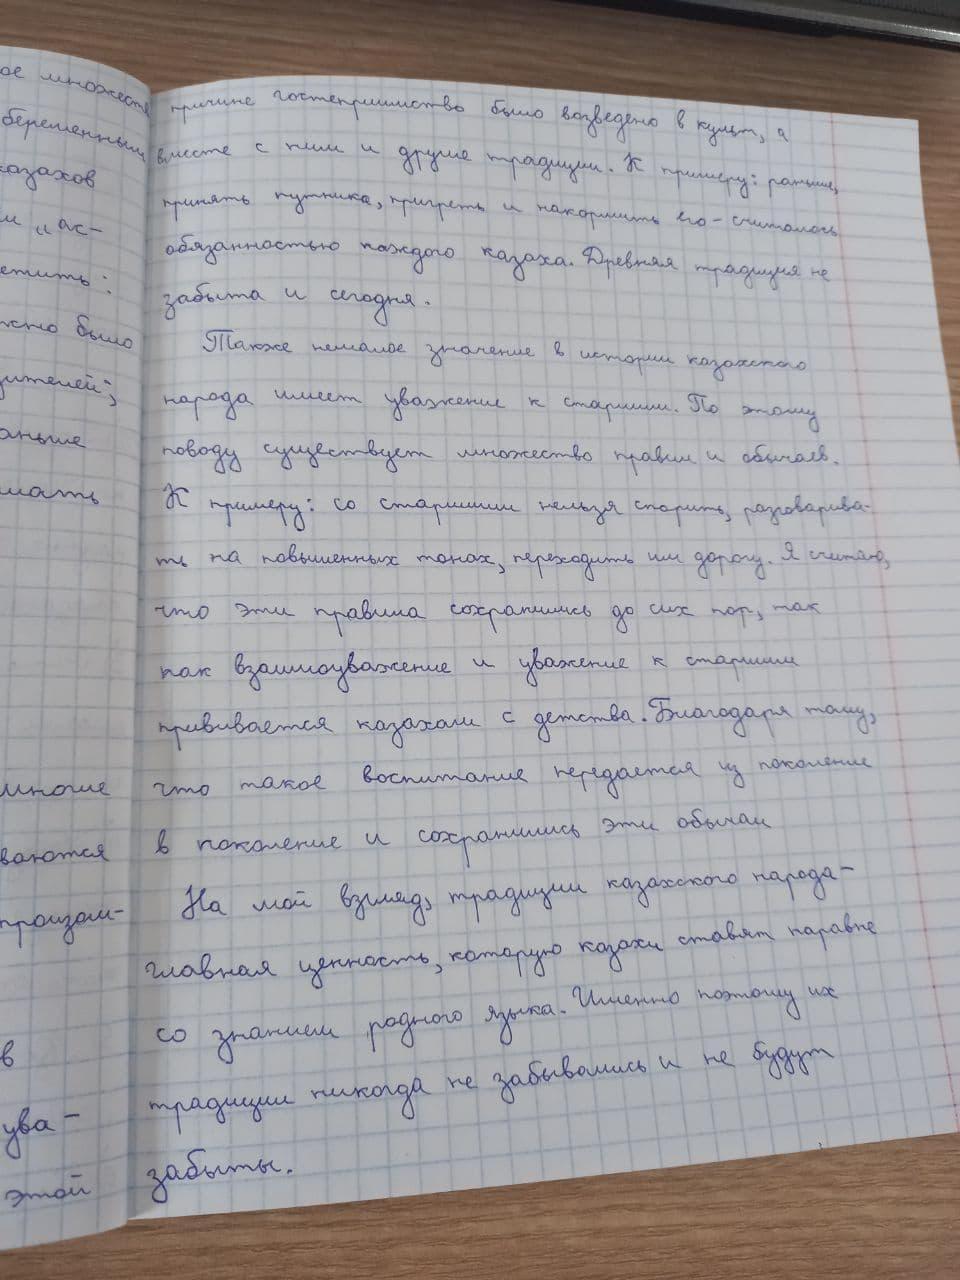 ое множеств
беременным
казахов
и „ас-
етить:
жно было
дителей;
аньше
мать
многие
ваются
произош-
в
ува-
этой
причине гостеприимство было возведено в культ, а
вместе с ним и другие традиции. К примеру: раньше,
принять путника, пригреть и накормить его - считалось
обязанностью каждого казаха. Древняя традиция не
забыта и сегодня.
Также немалое значение в истории казахского
народа имеет уважение к старшим. По этому
поводу существует множество правил и обычаев.
К примеру: со старшими нельзя спорить, разговарива-
ть на повышенных тонах, переходить им дорогу. Я считаю,
что эти правила сохранились до сих пор, так
как взаимоуважение и уважение к старшим
прививается казахам с детства. Благодаря тому,
что такое воспитание передается из поколение
в поколение и сохранились эти обычаи
На мой взгляд, традиции казахского народа -
главная ценность, которую казахи ставят наравне
со знанием родного языка. Именно поэтому их
традиции никогда не забывались и не будут
забыты.